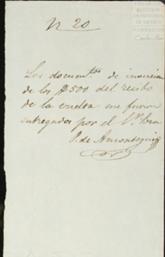 Nº 20
Los documtos de inversion
de los $500 del recibo
de la vuelta me fueron
entregados por el Sr. Dn
P. de Amontegui